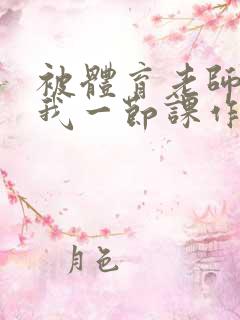 被體育老師
我一節課作
月色